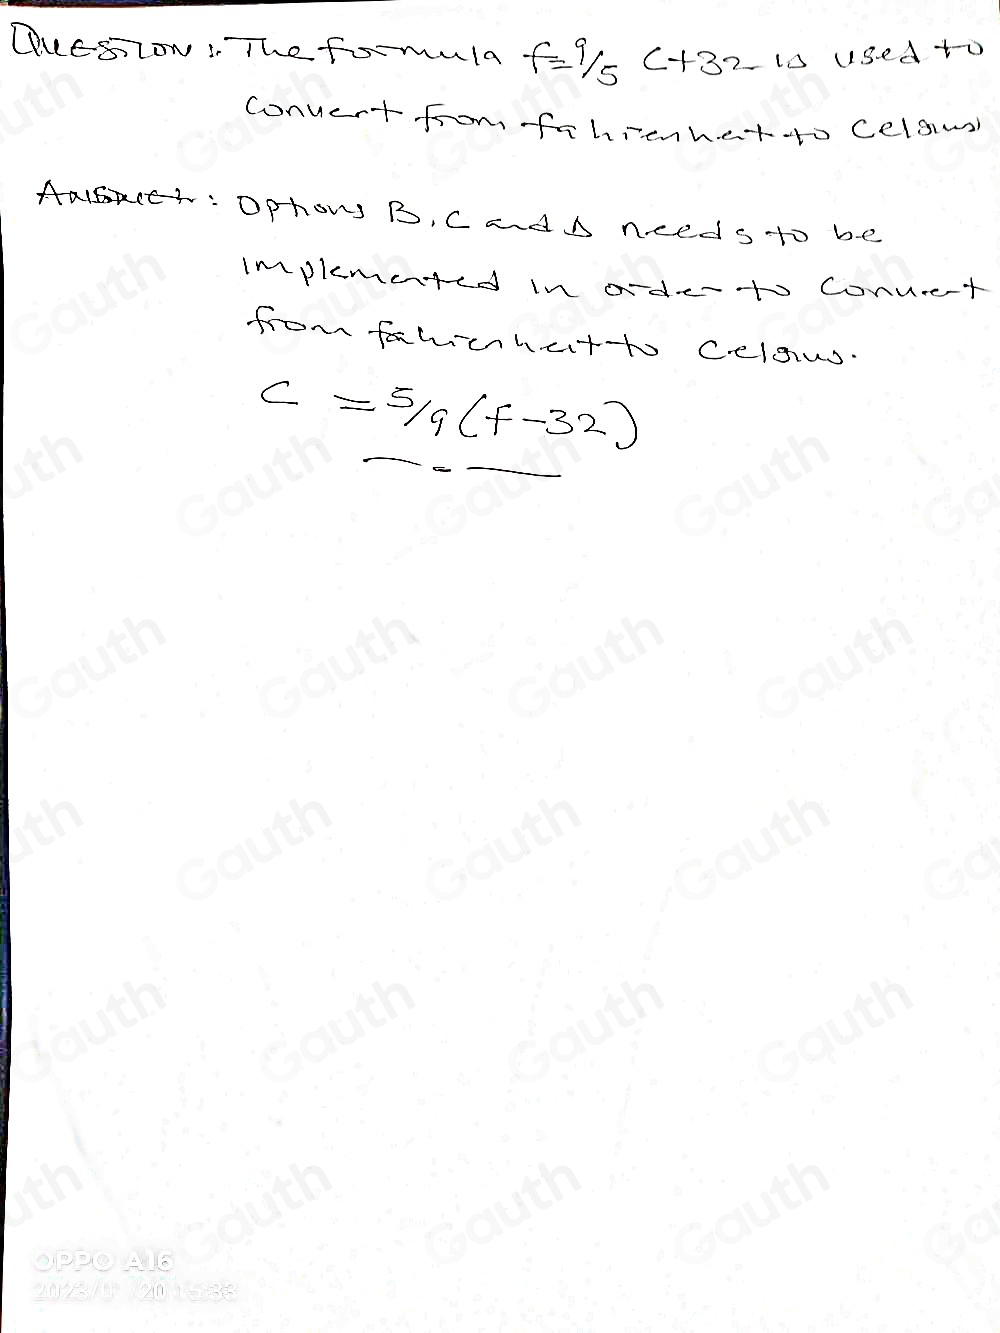 Question: The formula f=9/5 C+32 is used to
convert from fahrenheit to Celsius
Answer: Options B, C and D needs to be
implemented in order to convert
from fahrenheit to Celsius.
C = 5/9 (f-32)
OPPO A16